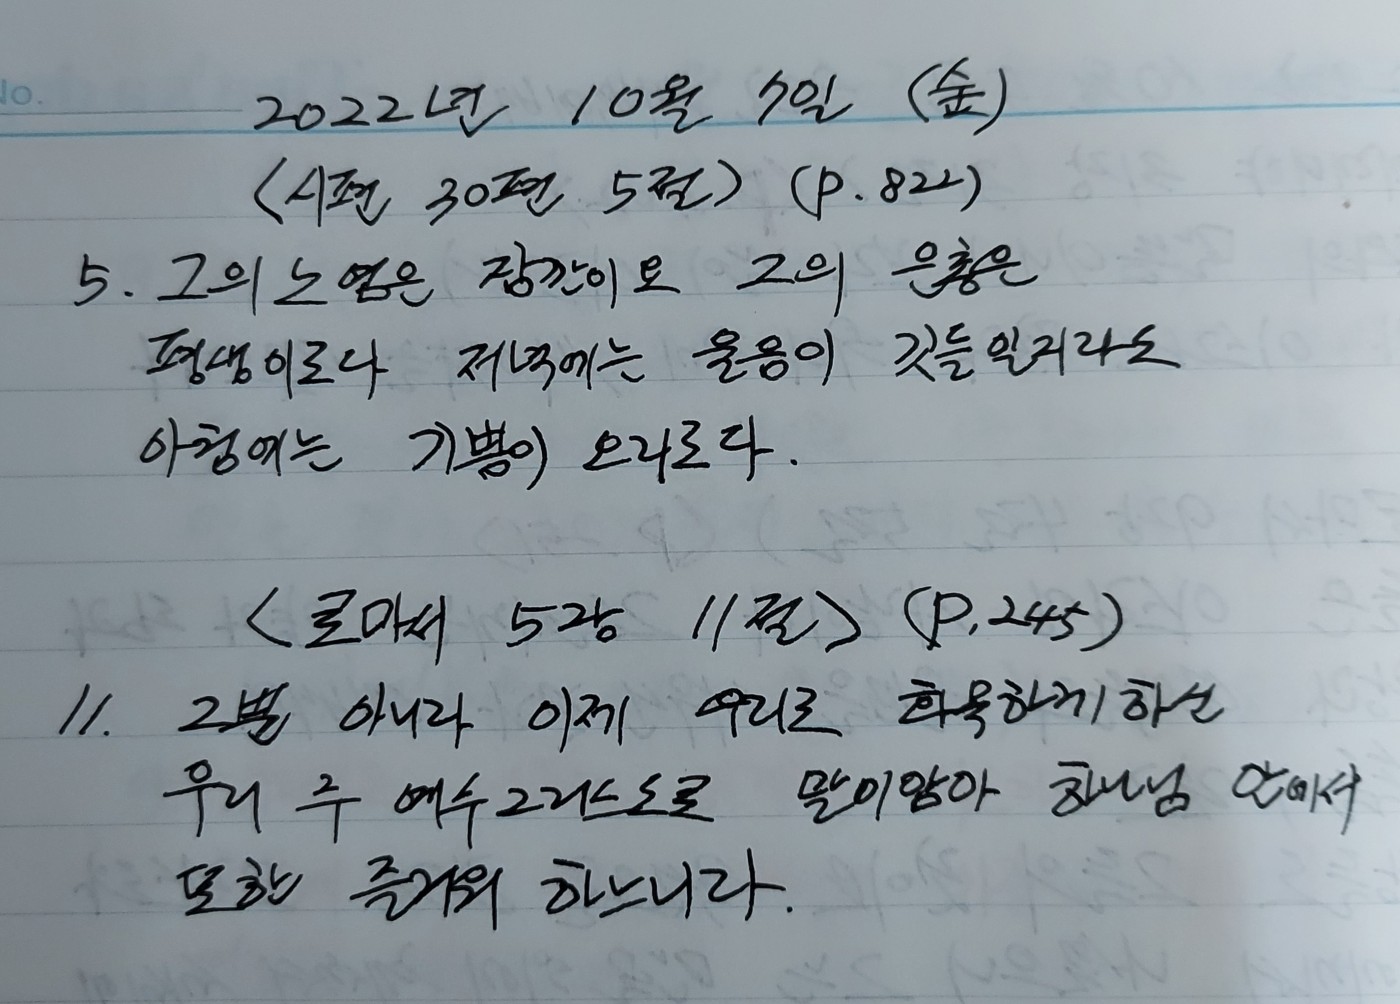 No.
2022년 10월 7일 (金)
<시편 30편 5절> (P.822)
5. 그의 노염은 잠깐이오 그의 은총은
평생이로다 저녁에는 울음이 깃들일지라도
아침에는 기쁨이 오리로다.
<로마서 5장 11절> (P.245)
11. 그뿐 아니라 이제 우리로 화목하게 하신
우리 주 예수 그리스도로 말미암아 하나님 안에서
또한 즐거워 하느니라.